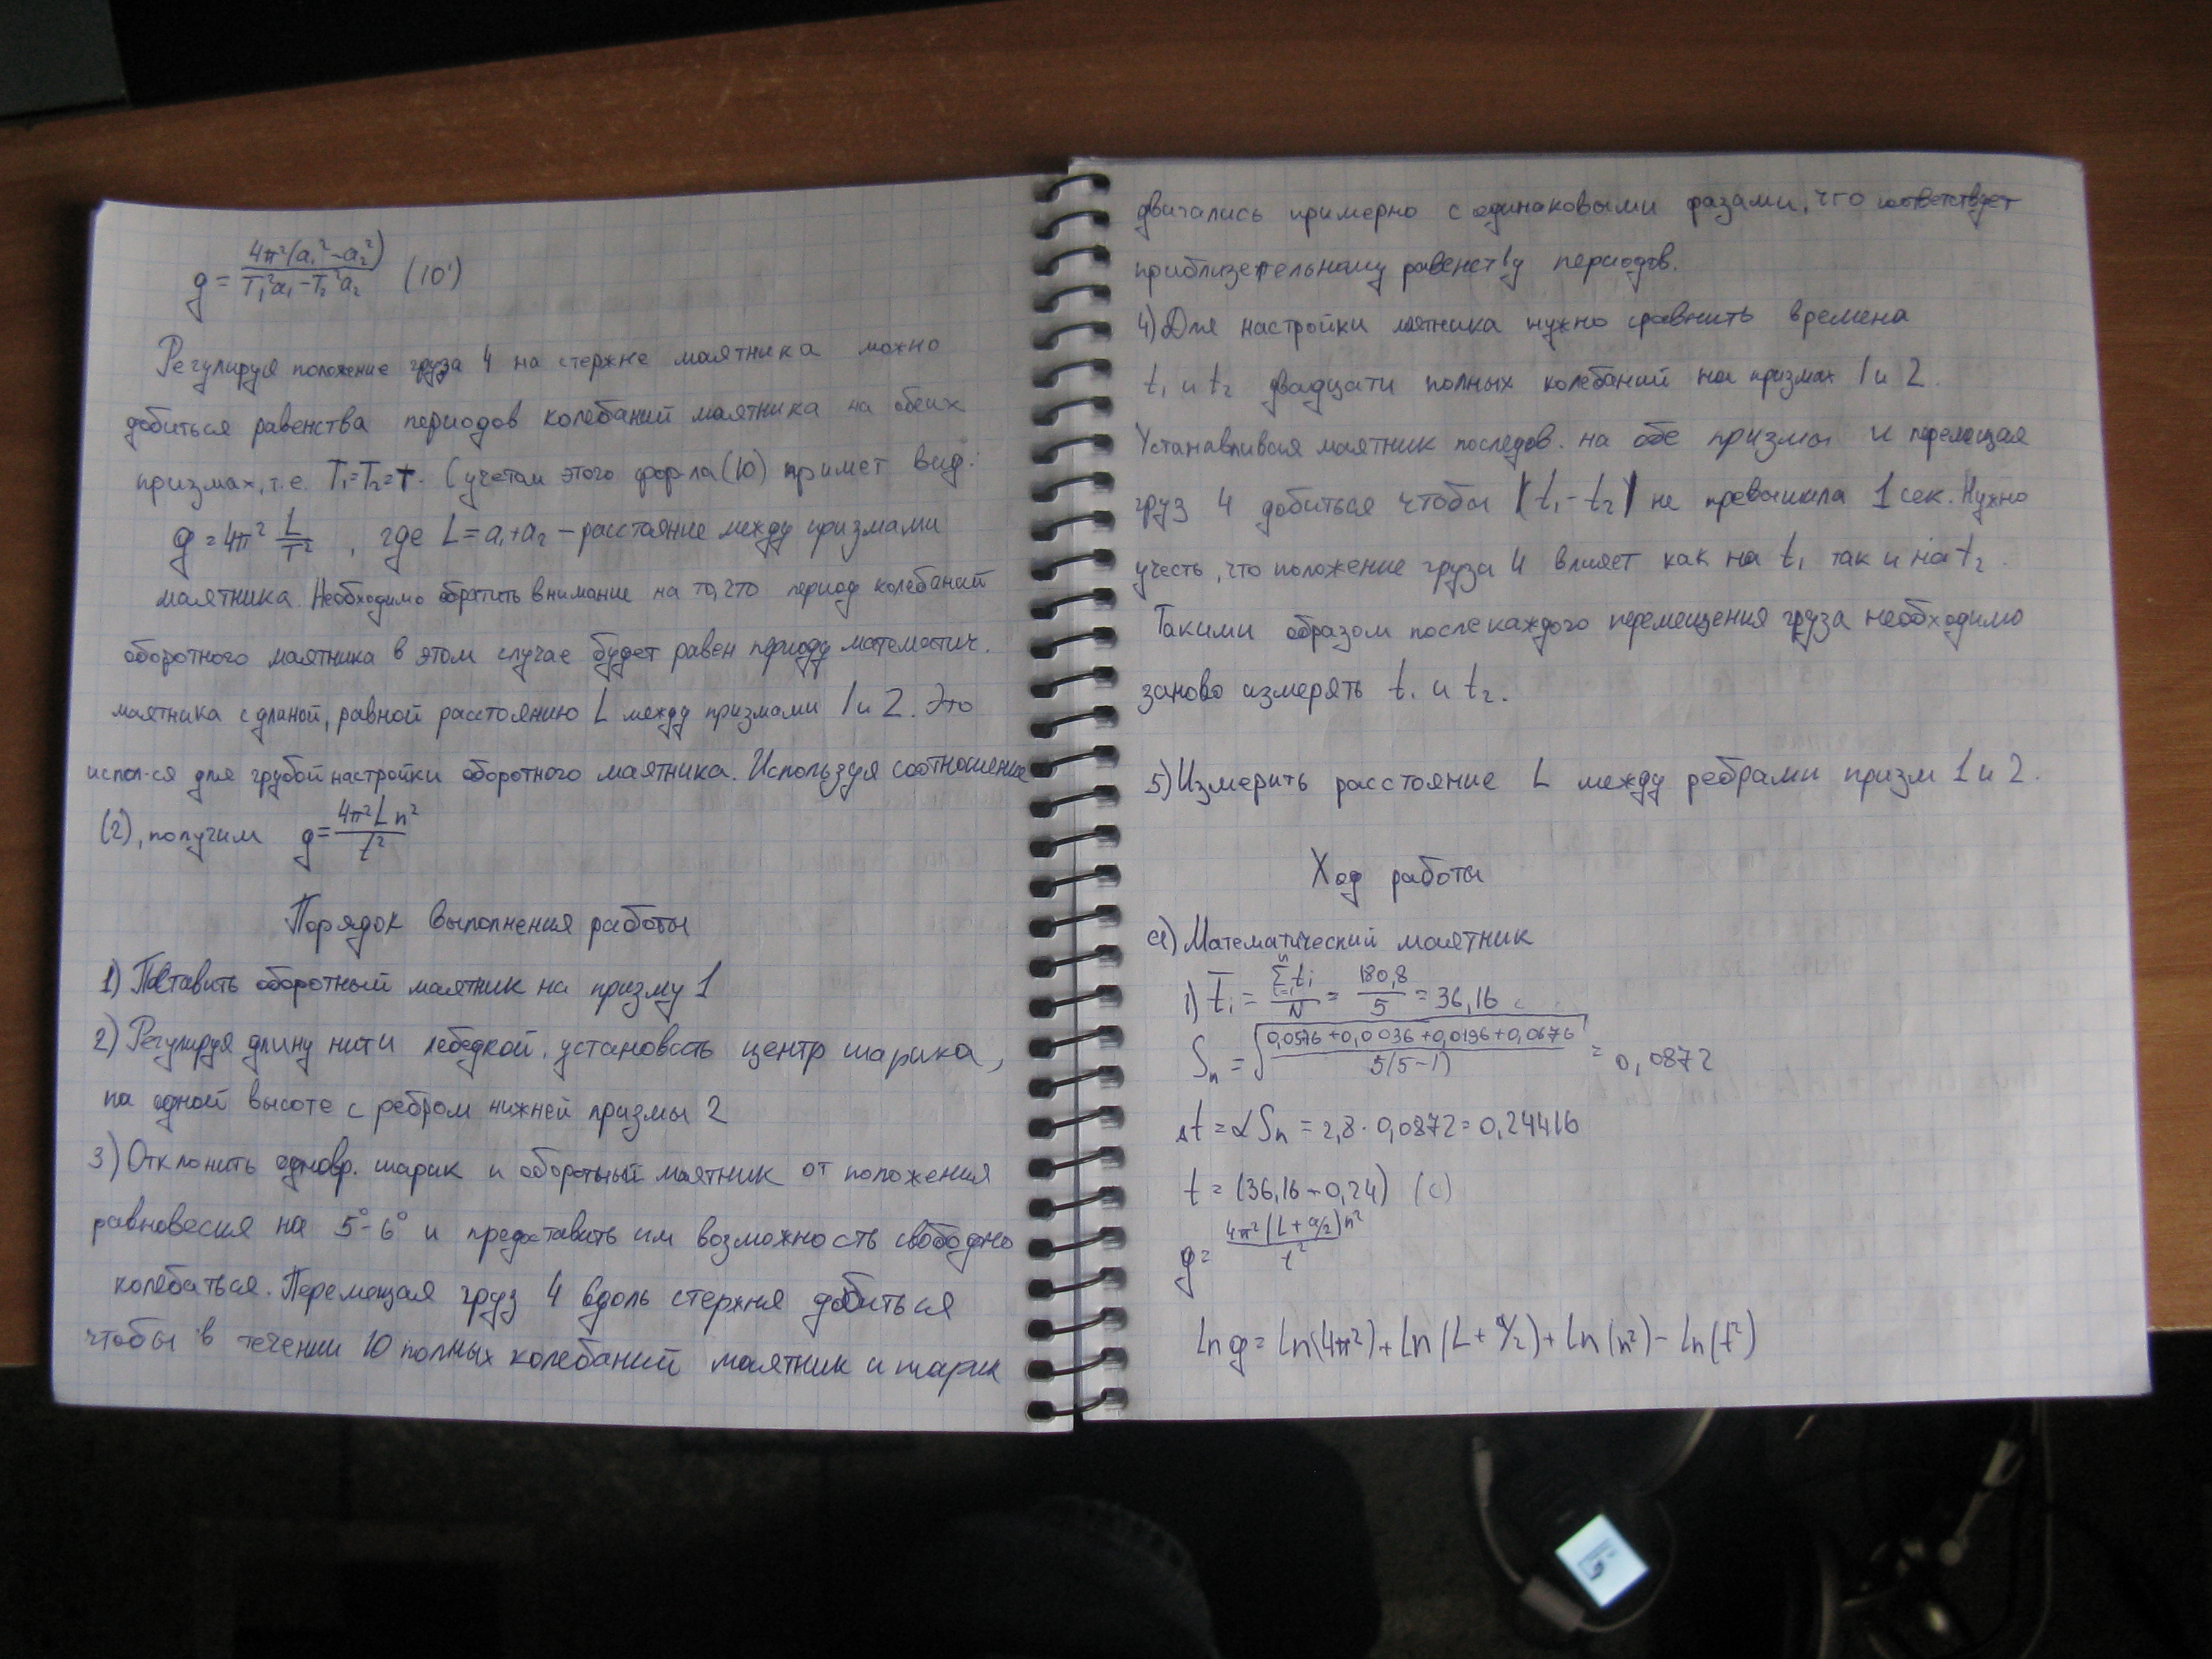 g = 4π²(a₁² - a₂²) / T₁²a₁ - T₂²a₂ (10')
Регулируя положение груза 4 на стержне маятника можно
добиться равенства периодов колебаний маятника на обеих
призмах, т.е. T₁=T₂=T. С учетом этого фор-ла (10) примет вид:
g = 4π² L/T² , где L = a₁+a₂ – расстояние между призмами
маятника. Необходимо обратить внимание на то, что период колебаний
оборотного маятника в этом случае будет равен периоду математич.
маятника с длиной, равной расстоянию L между призмами 1 и 2. Это
испол-ся для грубой настройки оборотного маятника. Используя соотношение
(2), получим g = 4π²Ln²/t²
Порядок выполнения работы
1) Поставить оборотный маятник на призму 1
2) Регулируя длину нити лебедкой, установить центр шарика,
на одной высоте с ребром нижней призмы 2
3) Отклонить одновр. шарик и оборотный маятник от положения
равновесия на 5°-6° и предоставить им возможность свободно
колебаться. Перемещая груз 4 вдоль стержня добиться
чтобы в течении 10 полных колебаний маятник и шарик
двигались примерно с одинаковыми фазами, что соответствует
приблизетельному равенству периодов.
4) Для настройки маятника нужно сравнить времена
t₁ и t₂ двадцати полных колебаний на призмах 1 и 2.
Устанавливая маятник последов. на обе призмы и перемещая
груз 4 добиться чтобы |t₁-t₂| не превышала 1 сек. Нужно
учесть, что положение груза 4 влияет как на t₁ так и на t₂.
Такими образом после каждого перемещения груза необходимо
заново измерять t₁ и t₂.
5) Измерить расстояние L между ребрами призм 1 и 2.
Ход работы
а) Математический маятник
1) t̄ᵢ = Σtᵢ/N = 180,8/5 = 36,16 с
Sₙ = √(0,0576+0,0036+0,0196+0,0676 / 5(5-1)) = 0,0872
Δt = αSₙ = 2,8 · 0,0872 = 0,24416
t = (36,16 - 0,24) (с)
g = 4π²(L+a/2)n²/t²
ln g = ln(4π²) + ln(L + a/2) + ln(n²) - ln(t²)